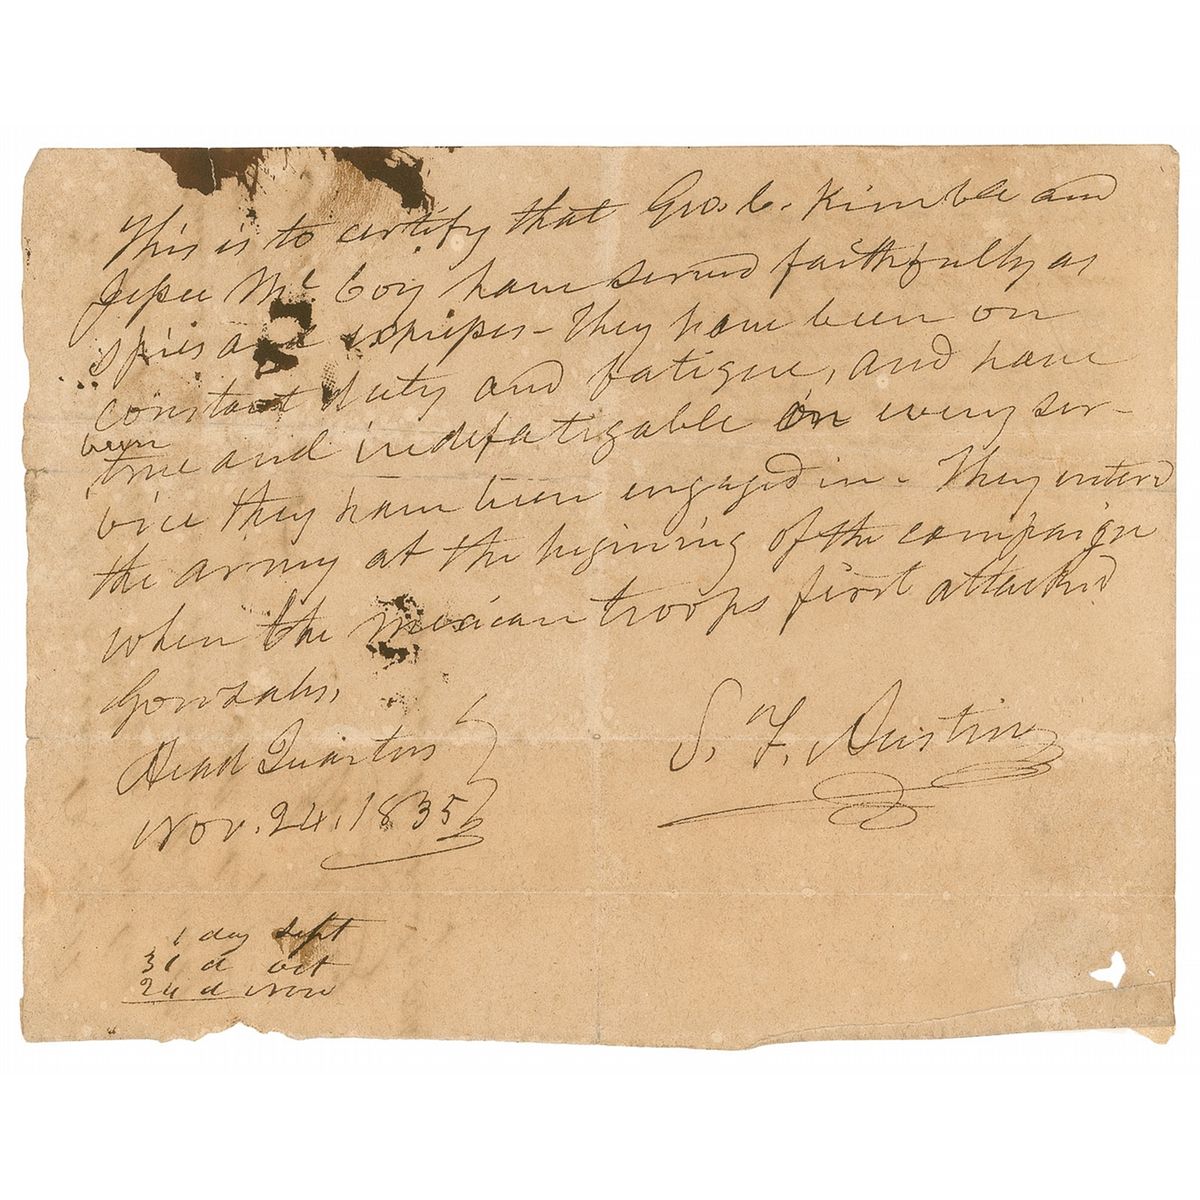 This is to certify that Geo. C. Kimble and
Jesse Mc Coy have served faithfully as
spies and — They have been on
constant duty and fatigue, and have
been
true and indefatigable on every ser-
vice they have been engaged in. They enterd
the army at the begining of the campaign
when the mexican troops first attackd
Gonzales,
Head Quarters
Nov. 24. 1835
S. F. Austin
1 day Sept
31 d oct
24 d Nov